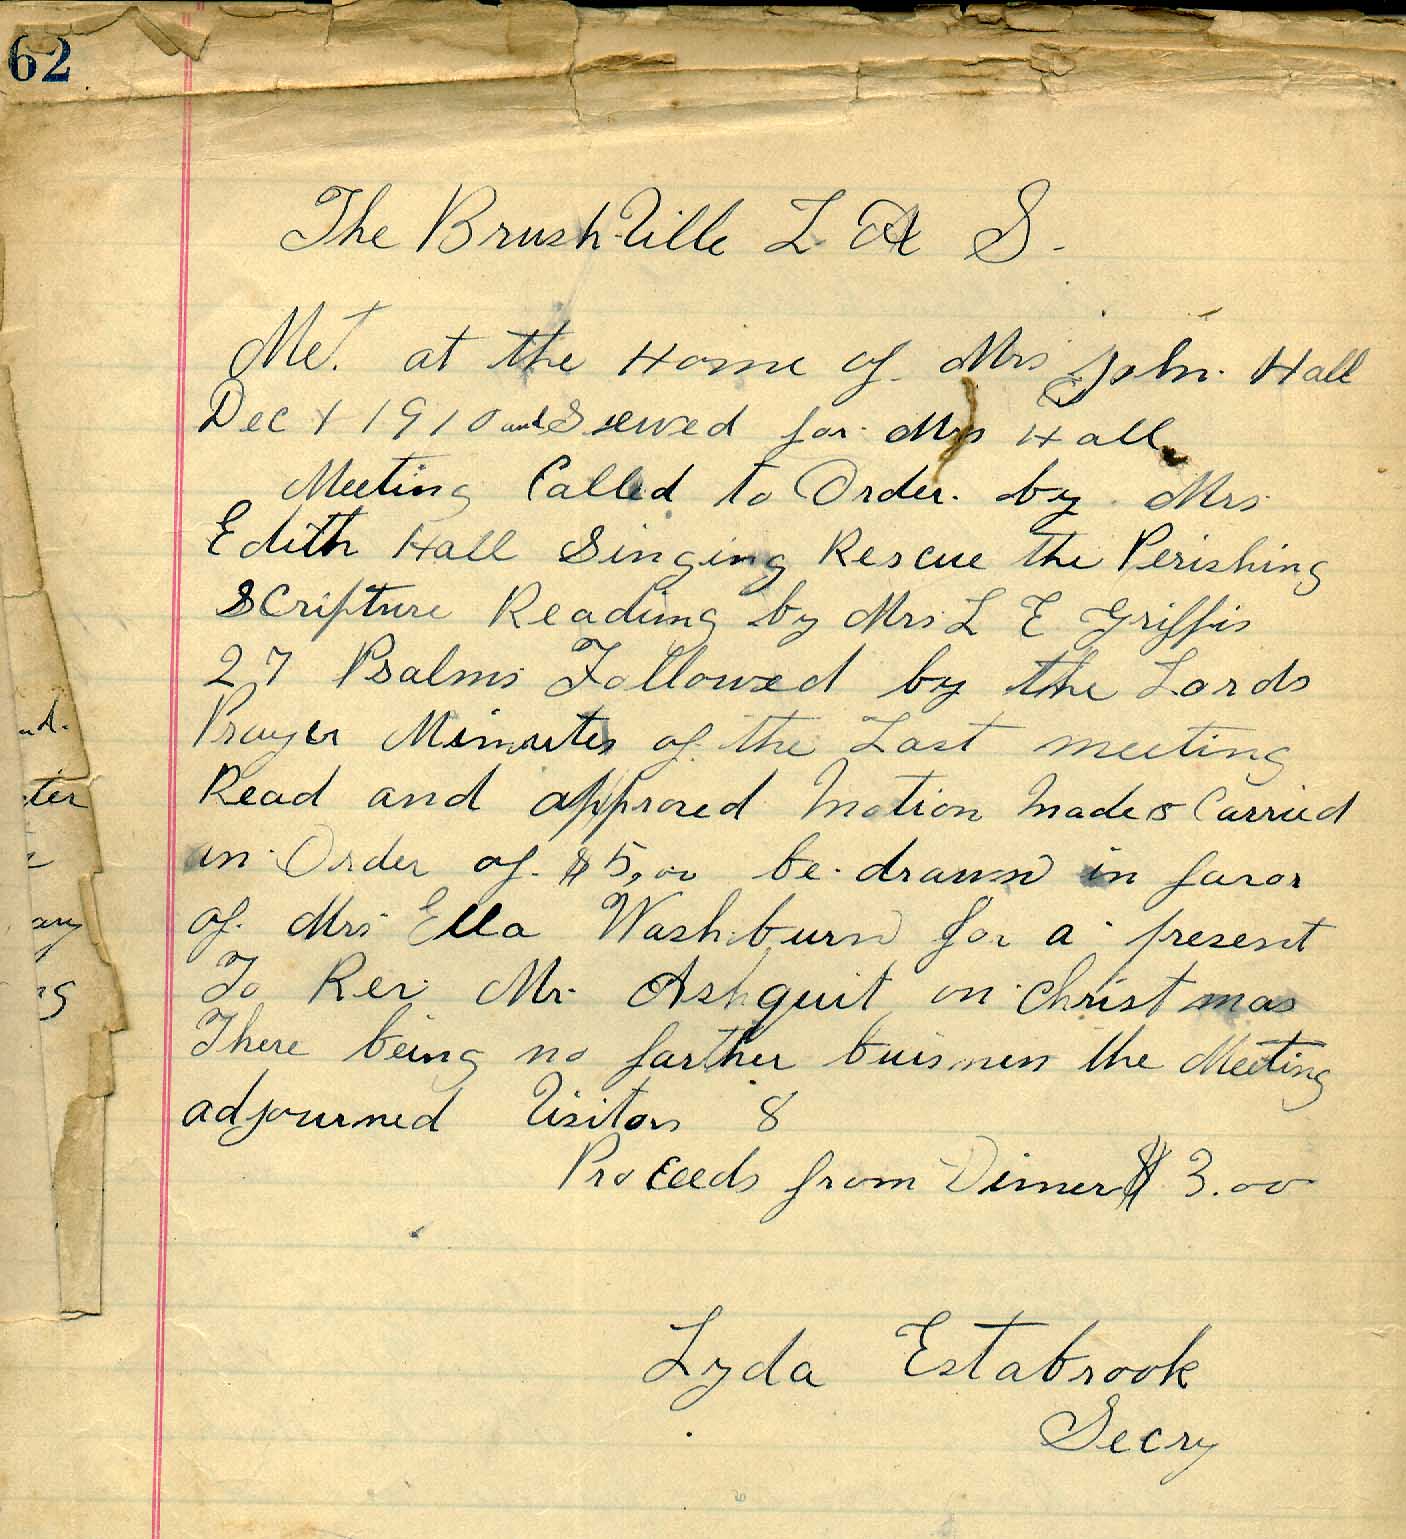 62
The Brush-Ville L A S.
Met. at the Home of Mrs John Hall
Dec 1910 and Sewed for Mrs Hall
Meeting Called to Order. by Mrs
Edith Hall Singing Rescue the Perishing
Scripture Reading by Mrs L E Griffis
27 Psalms Followed by the Lords
Prayer Minutes of the Last meeting
Read and approved Motion Made & Carried
an Order of $5,00 be drawn in favor
of Mrs Ella Washburn for a present
To Rev Mr. Ashquit on Christmas
There being no farther buisness the Meeting
adjourned Visitors 8
Proceeds from Dinner $3.00
Lyda Estabrook
Secry
ter
ary